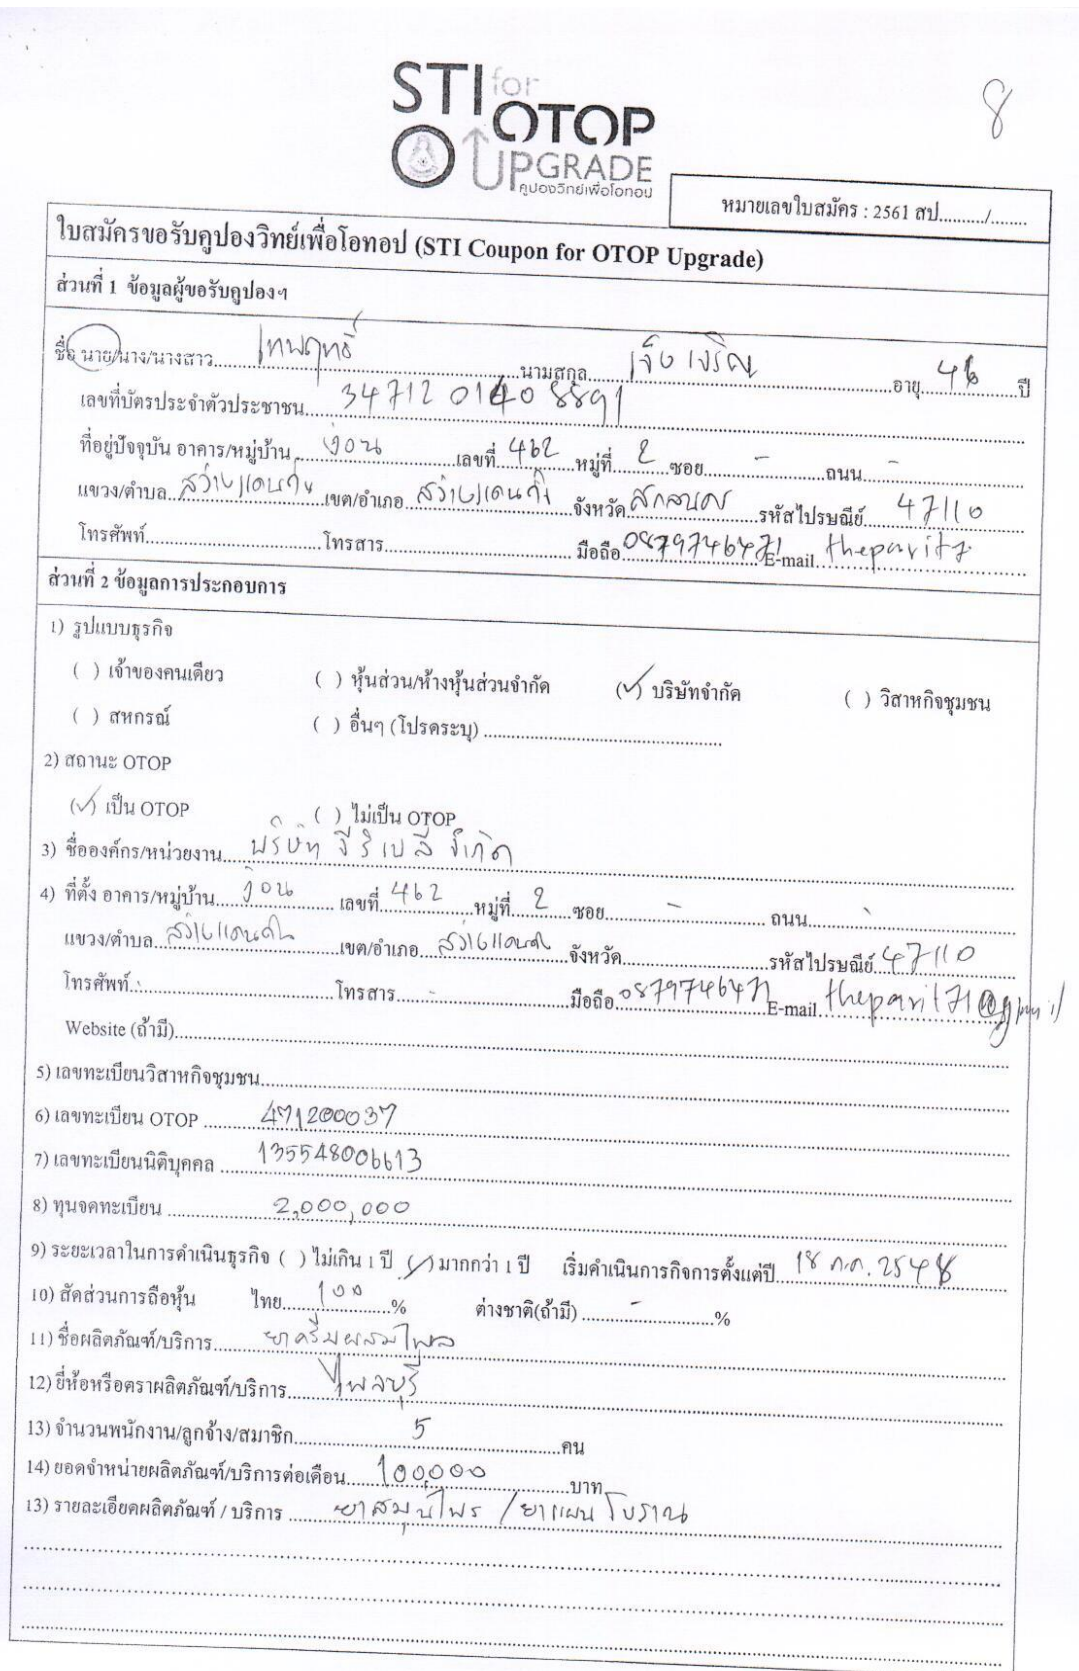 8
STI for
OTOP
UPGRADE
คูปองวิทย์เพื่อโอทอป
หมายเลขใบสมัคร : 2561 สป........../........
ใบสมัครขอรับคูปองวิทย์เพื่อโอทอป (STI Coupon for OTOP Upgrade)
ส่วนที่ 1 ข้อมูลผู้ขอรับคูปองฯ
ชื่อ นาย/นาง/นางสาว เทพฤทธิ์ นามสกุล เจ็งเจริญ อายุ 46 ปี
เลขที่บัตรประจำตัวประชาชน 3471201408891
ที่อยู่ปัจจุบัน อาคาร/หมู่บ้าน ง่อน เลขที่ 462 หมู่ที่ 2 ซอย - ถนน -
แขวง/ตำบล สว่างแดนดิน เขต/อำเภอ สว่างแดนดิน จังหวัด สกลนคร รหัสไปรษณีย์ 47110
โทรศัพท์ โทรสาร มือถือ 0879746471 E-mail theparit7
ส่วนที่ 2 ข้อมูลการประกอบการ
1) รูปแบบธุรกิจ
( ) เจ้าของคนเดียว ( ) หุ้นส่วน/ห้างหุ้นส่วนจำกัด (✓) บริษัทจำกัด ( ) วิสาหกิจชุมชน
( ) สหกรณ์ ( ) อื่นๆ (โปรดระบุ)
2) สถานะ OTOP
(✓) เป็น OTOP ( ) ไม่เป็น OTOP
3) ชื่อองค์กร/หน่วยงาน บริษัท จีริเบลี จำกัด
4) ที่ตั้ง อาคาร/หมู่บ้าน ง่อน เลขที่ 462 หมู่ที่ 2 ซอย - ถนน -
แขวง/ตำบล สว่างแดนดิน เขต/อำเภอ สว่างแดนดิน จังหวัด รหัสไปรษณีย์ 47110
โทรศัพท์ โทรสาร - มือถือ 0879746471 E-mail theparit71@gmail
Website (ถ้ามี)
5) เลขทะเบียนวิสาหกิจชุมชน
6) เลขทะเบียน OTOP 471200037
7) เลขทะเบียนนิติบุคคล 135548006613
8) ทุนจดทะเบียน 2,000,000
9) ระยะเวลาในการดำเนินธุรกิจ ( ) ไม่เกิน 1 ปี (✓) มากกว่า 1 ปี เริ่มดำเนินการกิจการตั้งแต่ปี 18 ก.ค. 2548
10) สัดส่วนการถือหุ้น ไทย 100 % ต่างชาติ(ถ้ามี) - %
11) ชื่อผลิตภัณฑ์/บริการ ยาครีมผสมไพล
12) ยี่ห้อหรือตราผลิตภัณฑ์/บริการ ไพลบุรี
13) จำนวนพนักงาน/ลูกจ้าง/สมาชิก 5 คน
14) ยอดจำหน่ายผลิตภัณฑ์/บริการต่อเดือน 100,000 บาท
13) รายละเอียดผลิตภัณฑ์ / บริการ ยาสมุนไพร / ยาแผนโบราณ